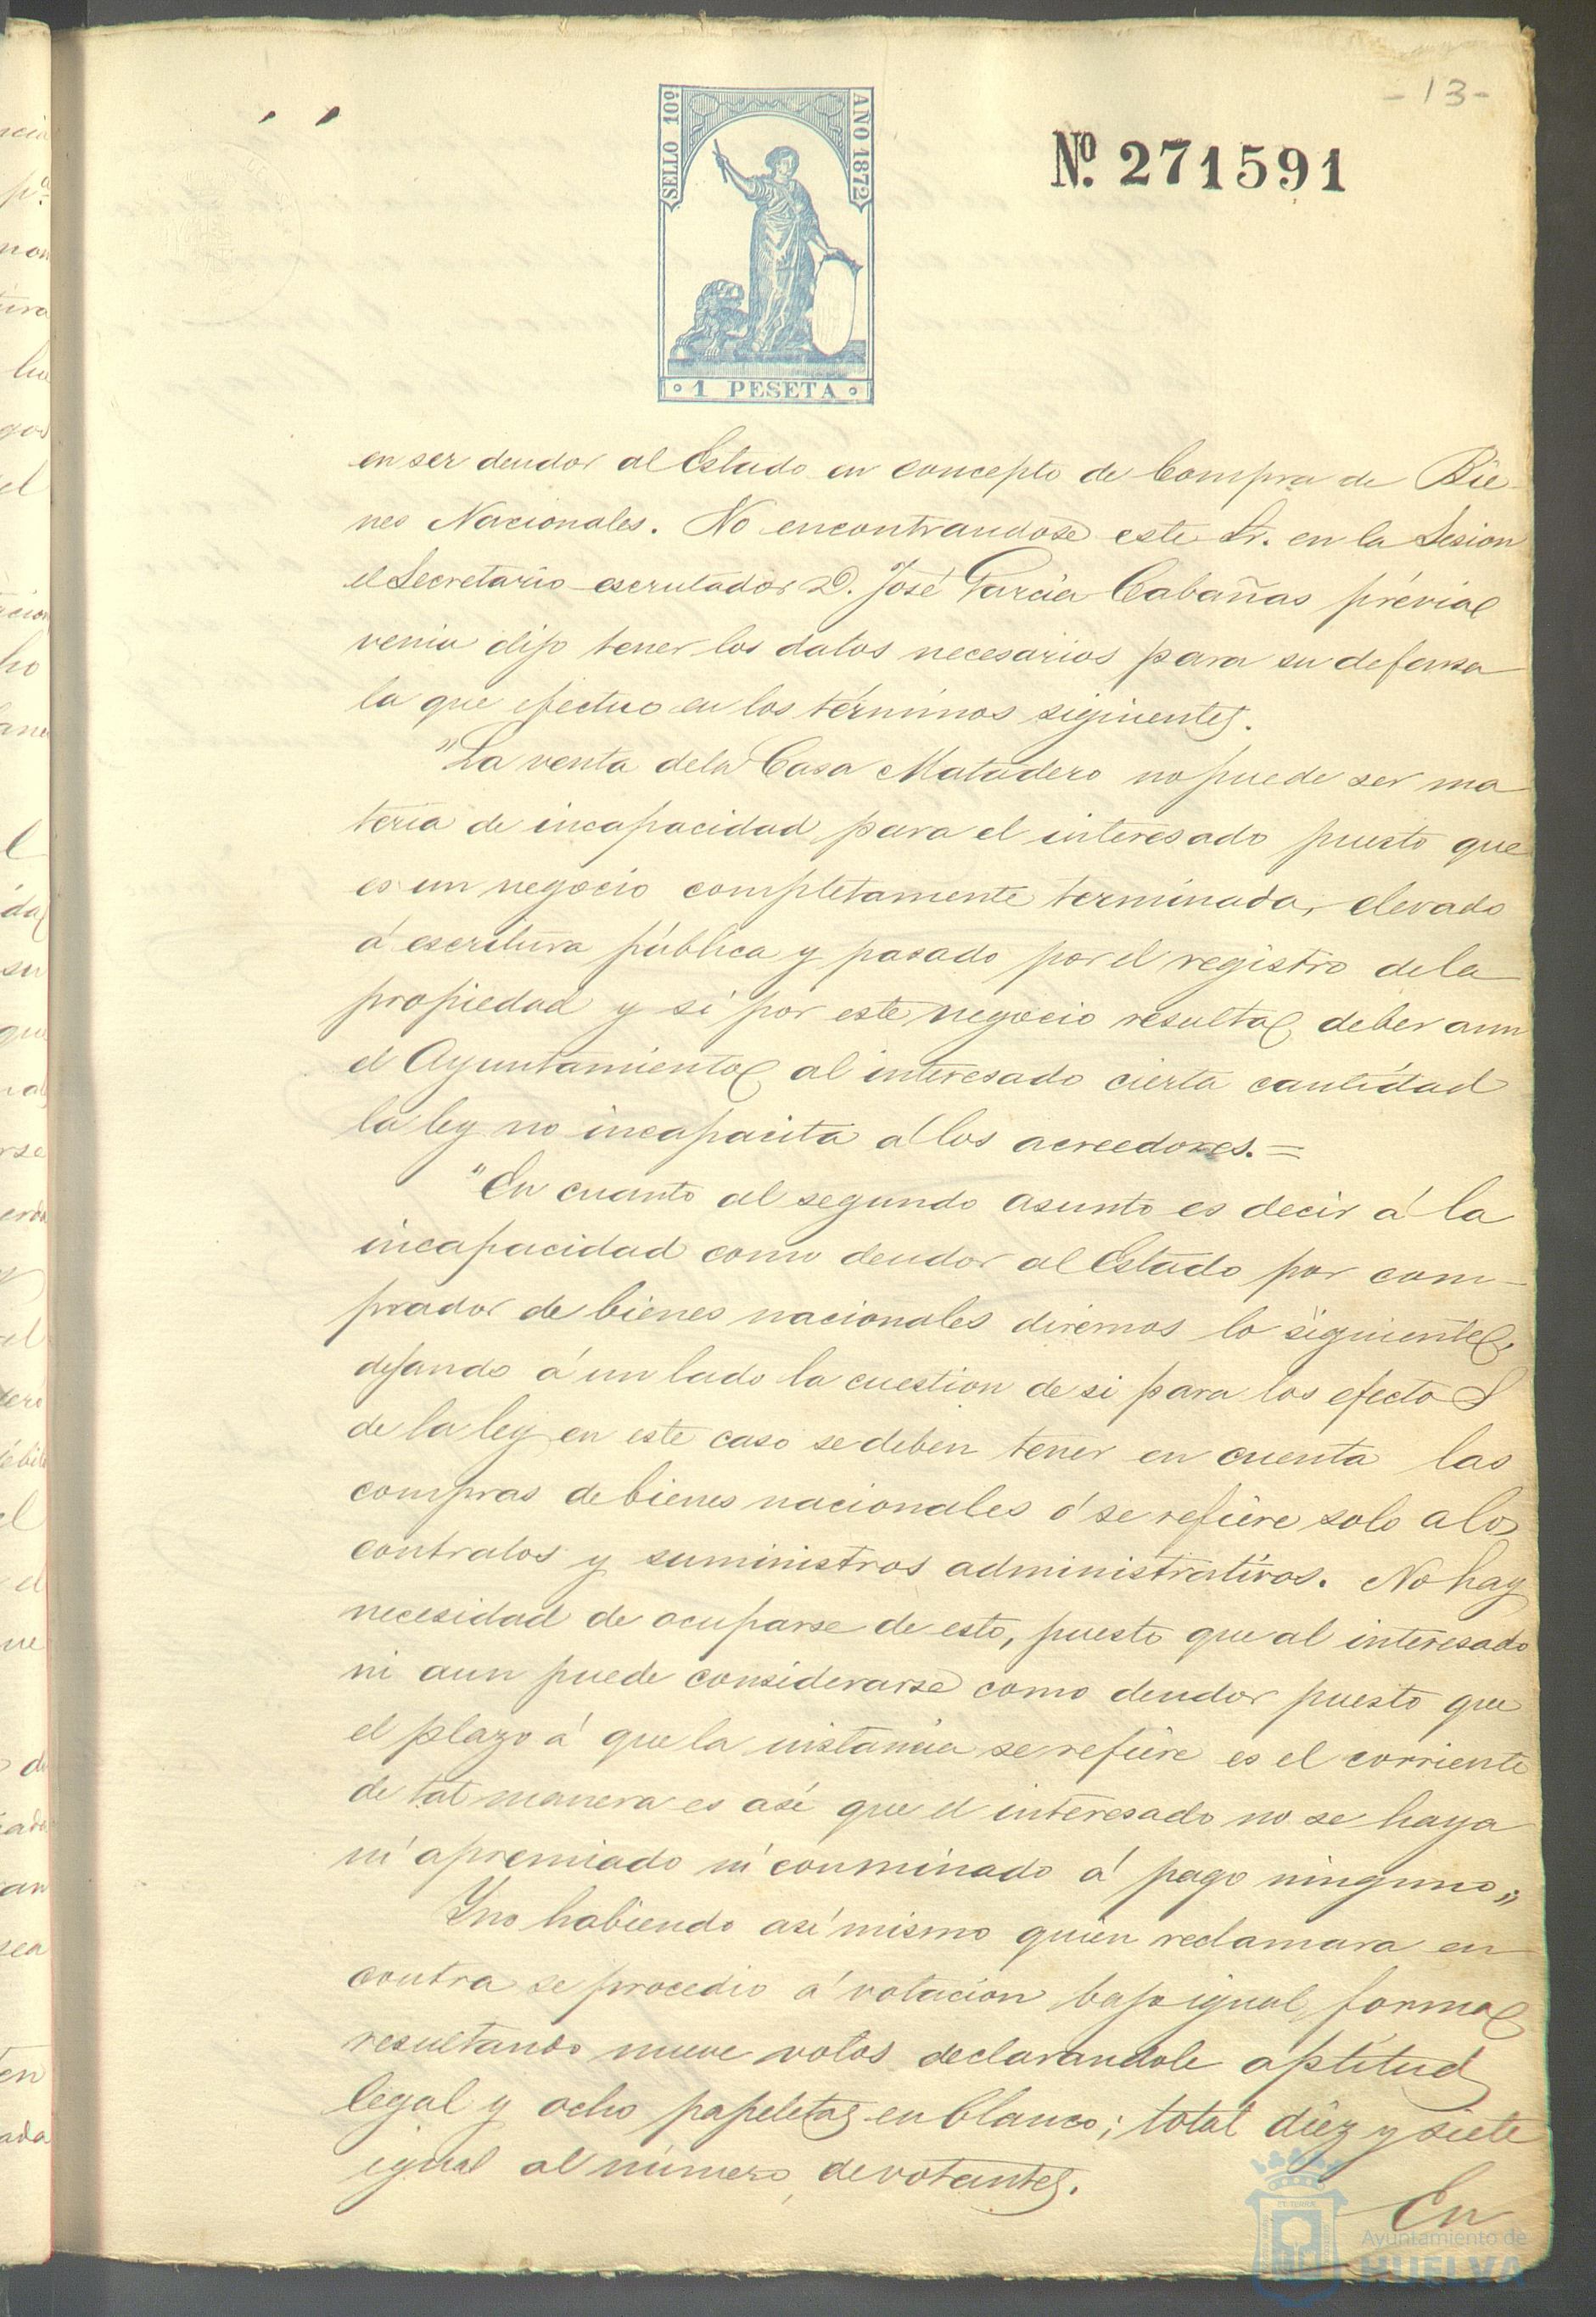 -13-
SELLO 10º
AÑO 1872
Nº. 271591
1 PESETA
en ser deudor al Estado en concepto de Compra de Bie-
nes Nacionales. No encontrandose este Sr. en la Sesion
el Secretario escrutador D. José Garcia Cabañas prévia
venia dijo tener los datos necesarios para su defensa
la que efectuo en los términos siguientes.
"La venta dela Casa Matadero no puede ser ma
teria de incapacidad para el interesado puesto que
es un negocio completamente terminado, elevado
á escritura pública y pasado por el registro dela
propiedad y si por este negocio resulta deber aun
el Ayuntamiento al interesado cierta cantidad
la ley no incapacita á los acreedores.=
"En cuanto al segundo asunto es decir á la
incapacidad como deudor al Estado por com-
prador de bienes nacionales diremos lo siguiente,
dejando á un lado la cuestion de si para los efectos
de la ley en este caso se deben tener en cuenta las
compras de bienes nacionales ó se refiere solo a los
contratos y suministros administrativos. No hay
necesidad de ocuparse de esto, puesto que al interesado
ni aun puede considerarse como deudor puesto que
el plazo á que la instancia se refiere es el corriente
de tal manera es asi que el interesado no se haya
ni apremiado ni conminado á pago ninguno,,
Y no habiendo asi mismo quien reclamara en
contra se procedio á votacion bajo igual forma
resultando nueve votos declarandole aptitud
legal y ocho papeletas en blanco; total diez y siete
igual al número de votantes.
En
Ayuntamiento de
HUELVA